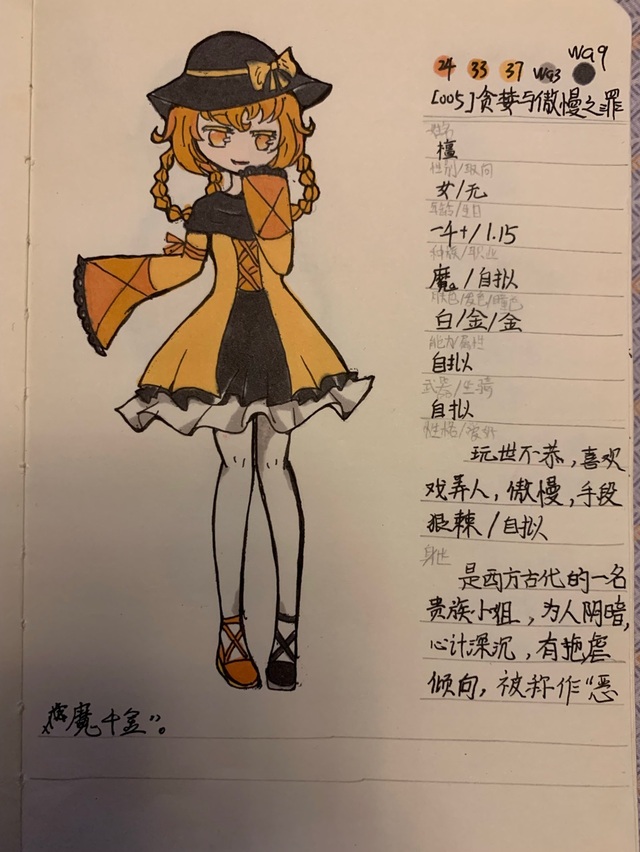 24 33 37 wg3 wg9
[005]贪婪与傲慢之罪
姓名
檀
性别/取向
女/无
年龄/生日
一千+/1.15
种族/职业
魔/自拟
肤色/发色/瞳色
白/金/金
能力/属性
自拟
武器/坐骑
自拟
性格/爱好
玩世不恭，喜欢
戏弄人，傲慢，手段
狠辣/自拟
身世
是西方古代的一名
贵族小姐，为人阴暗，
心计深沉，有施虐
倾向，被称作“恶
魔千金”。